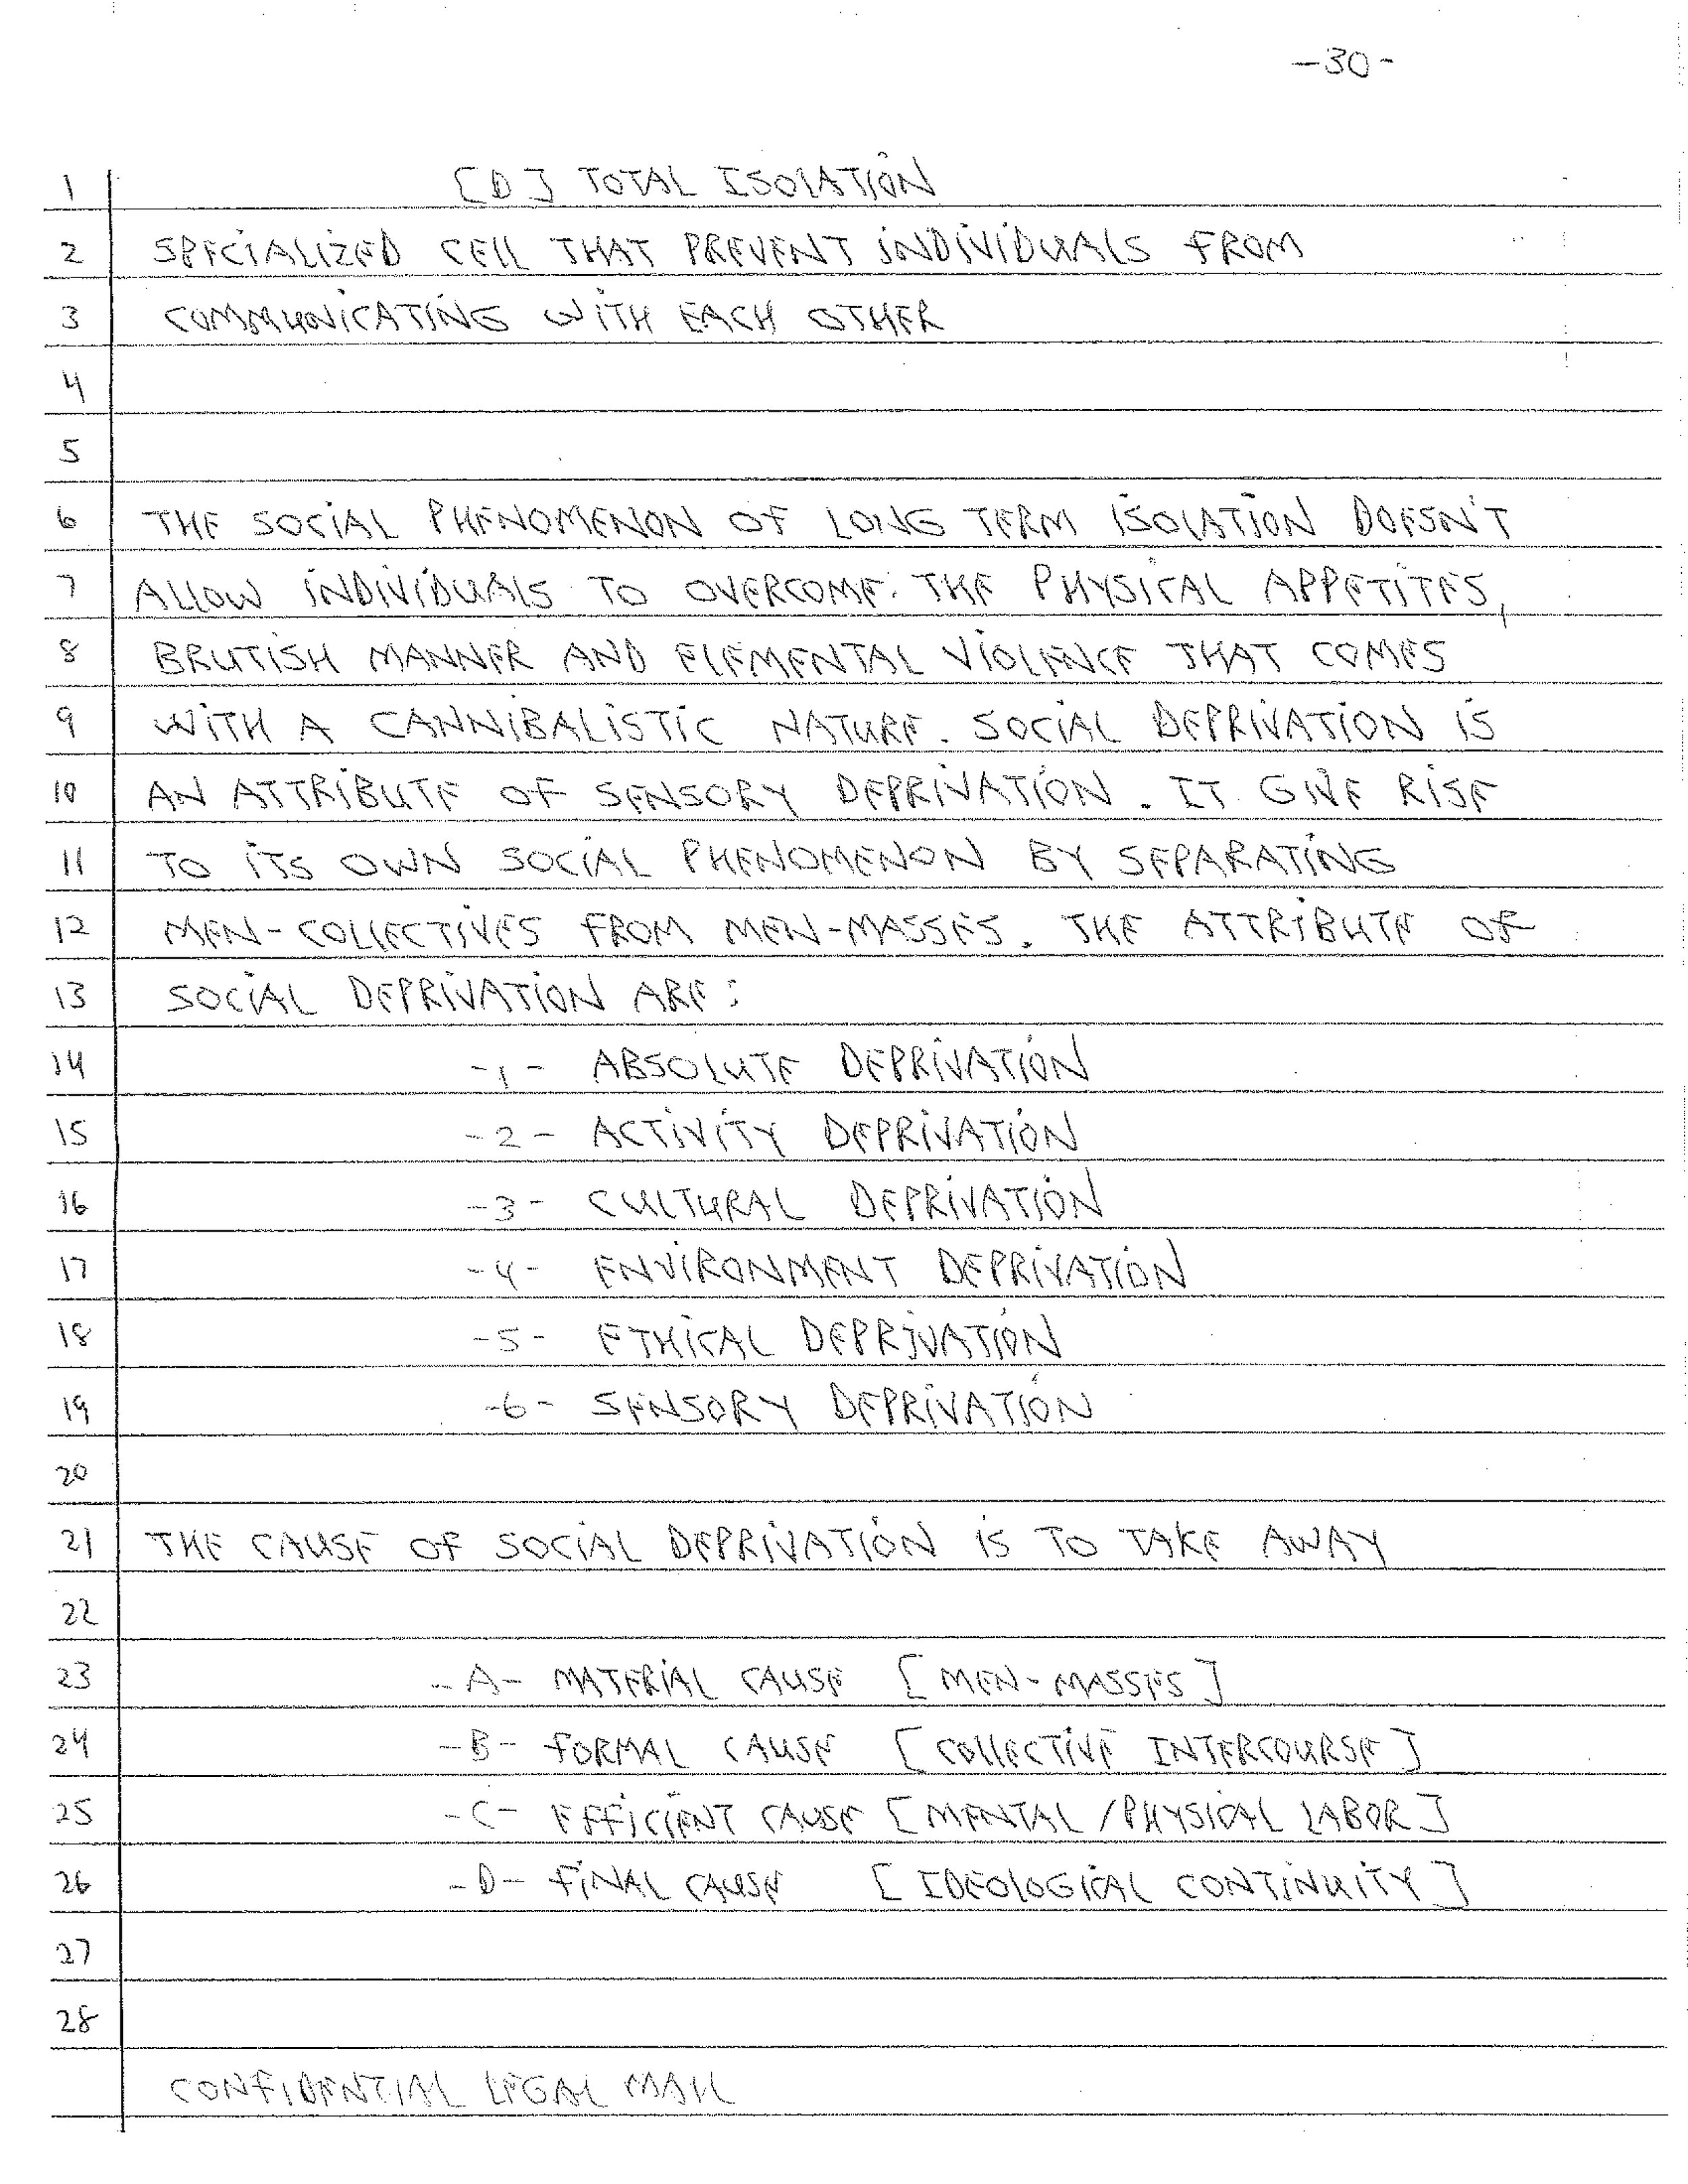 -30-
1 [D] TOTAL ISOLATION
2 SPECIALIZED CELL THAT PREVENT INDIVIDUALS FROM
3 COMMUNICATING WITH EACH OTHER
4
5
6 THE SOCIAL PHENOMENON OF LONG TERM ISOLATION DOESN'T
7 ALLOW INDIVIDUALS TO OVERCOME THE PHYSICAL APPETITES,
8 BRUTISH MANNER AND ELEMENTAL VIOLENCE THAT COMES
9 WITH A CANNIBALISTIC NATURE. SOCIAL DEPRIVATION IS
10 AN ATTRIBUTE OF SENSORY DEPRIVATION. IT GIVE RISE
11 TO ITS OWN SOCIAL PHENOMENON BY SEPARATING
12 MEN-COLLECTIVES FROM MEN-MASSES. THE ATTRIBUTE OF
13 SOCIAL DEPRIVATION ARE:
14 -1- ABSOLUTE DEPRIVATION
15 -2- ACTIVITY DEPRIVATION
16 -3- CULTURAL DEPRIVATION
17 -4- ENVIRONMENT DEPRIVATION
18 -5- ETHICAL DEPRIVATION
19 -6- SENSORY DEPRIVATION
20
21 THE CAUSE OF SOCIAL DEPRIVATION IS TO TAKE AWAY
22
23 -A- MATERIAL CAUSE [MEN-MASSES]
24 -B- FORMAL CAUSE [COLLECTIVE INTERCOURSE]
25 -C- EFFICIENT CAUSE [MENTAL/PHYSICAL LABOR]
26 -D- FINAL CAUSE [IDEOLOGICAL CONTINUITY]
27
28
CONFIDENTIAL LEGAL MAIL